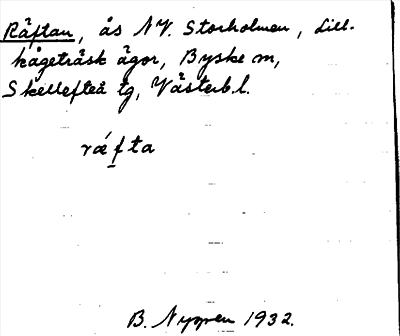 Räftan, ås NV. Storholmen, Lill-
kågeträsk ägor, Byske sn,
Skellefteå tg, Västerb.l.
ráfta
B. Nyman 1932.